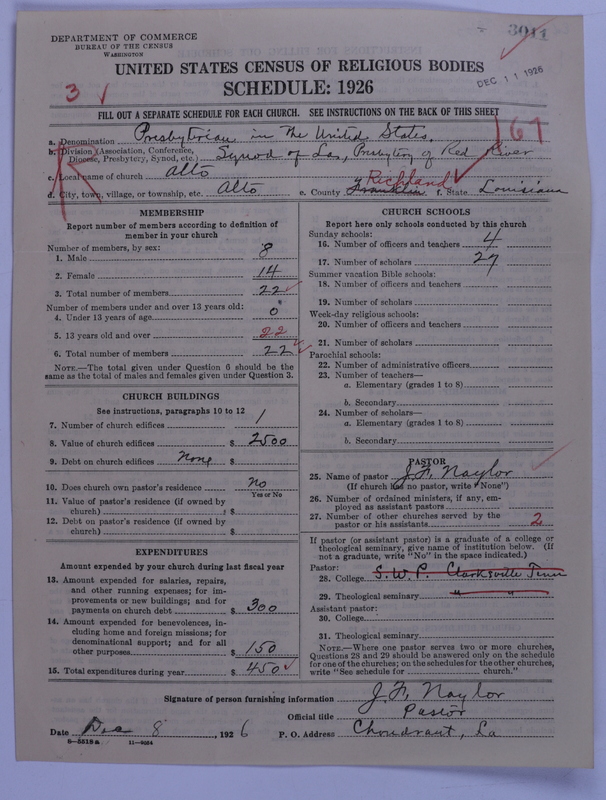 DEPARTMENT OF COMMERCE
BUREAU OF THE CENSUS
WASHINGTON
3011
DEC 11 1926
UNITED STATES CENSUS OF RELIGIOUS BODIES
SCHEDULE: 1926
3
FILL OUT A SEPARATE SCHEDULE FOR EACH CHURCH. SEE INSTRUCTIONS ON THE BACK OF THIS SHEET
a. Denomination Presbyterian in The United States,
b. Division (Association, Conference, Diocese, Presbytery, Synod, etc.) Synod of La, Presbytery of Red River
c. Local name of church Alto
d. City, town, village, or township, etc. Alto e. County Franklin Richland f. State Louisiana
MEMBERSHIP
Report number of members according to definition of
member in your church
Number of members, by sex:
1. Male 8
2. Female 14
3. Total number of members 22
Number of members under and over 13 years old:
4. Under 13 years of age 0
5. 13 years old and over 22
6. Total number of members 22
NOTE.—The total given under Question 6 should be the
same as the total of males and females given under Question 3.
CHURCH BUILDINGS
See instructions, paragraphs 10 to 12
7. Number of church edifices 1
8. Value of church edifices $ 2500
9. Debt on church edifices none $
10. Does church own pastor's residence No
Yes or No
11. Value of pastor's residence (if owned by
church) $
12. Debt on pastor's residence (if owned by
church) $
EXPENDITURES
Amount expended by your church during last fiscal year
13. Amount expended for salaries, repairs,
and other running expenses; for im-
provements or new buildings; and for
payments on church debt $ 300
14. Amount expended for benevolences, in-
cluding home and foreign missions; for
denominational support; and for all
other purposes $ 150
15. Total expenditures during year $ 450
CHURCH SCHOOLS
Report here only schools conducted by this church
Sunday schools:
16. Number of officers and teachers 4
17. Number of scholars 27
Summer vacation Bible schools:
18. Number of officers and teachers
19. Number of scholars
Week-day religious schools:
20. Number of officers and teachers
21. Number of scholars
Parochial schools:
22. Number of administrative officers
23. Number of teachers—
a. Elementary (grades 1 to 8)
b. Secondary
24. Number of scholars—
a. Elementary (grades 1 to 8)
b. Secondary
PASTOR
25. Name of pastor J. F. Naylor
(If church has no pastor, write "None")
26. Number of ordained ministers, if any, em-
ployed as assistant pastors
27. Number of other churches served by the
pastor or his assistants 2
If pastor (or assistant pastor) is a graduate of a college or
theological seminary, give name of institution below. (If
not a graduate, write "No" in the space indicated.)
Pastor:
28. College S. W. P. Clarksville Tenn
29. Theological seminary " "
Assistant pastor:
30. College
31. Theological seminary
NOTE.—Where one pastor serves two or more churches,
Questions 28 and 29 should be answered only on the schedule
for one of the churches; on the schedules for the other churches,
write "See schedule for church."
Signature of person furnishing information J. F. Naylor
Official title Pastor
Date Dec 8, 1926 P. O. Address Choudrant, La